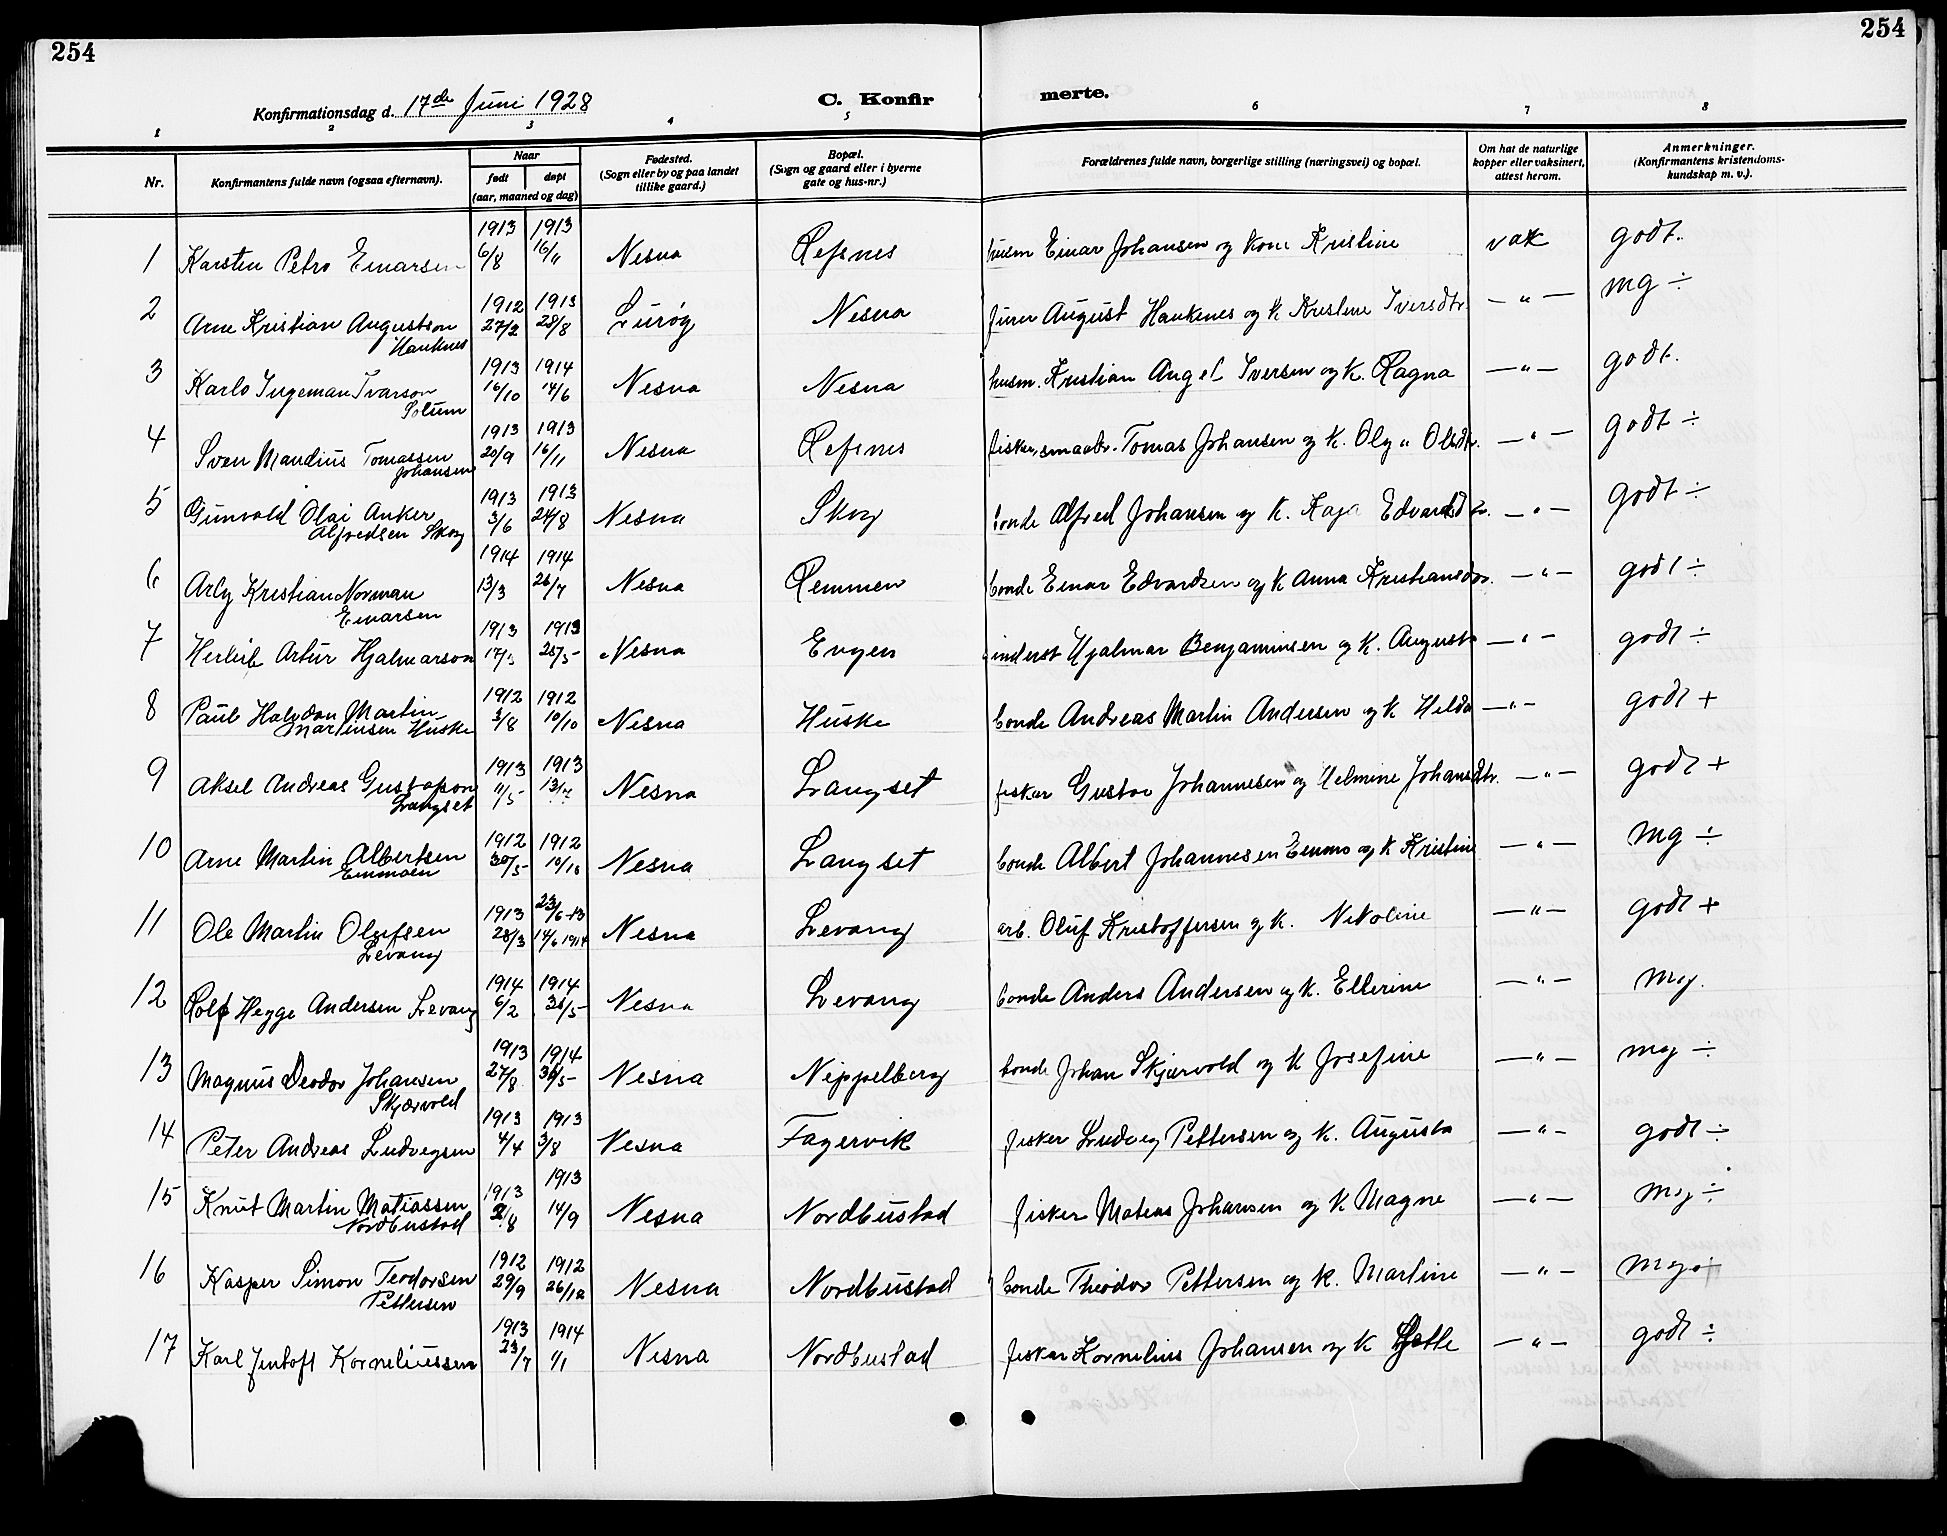 254
254
Konfirmationsdag d. 17de Juni 1928
C. Konfir
merte.
1 2 3 4 5 6 7 8
Nr.
Konfirmantens fulde navn (ogsaa efternavn).
Naar
født
døpt
(aar, maaned og dag)
Fødested.
(Sogn eller by og paa landet
tillike gaard.)
Bopæl.
(Sogn og gaard eller i byerne
gate og hus-nr.)
Forældrenes fulde navn, borgerlige stilling (næringsvei) og bopæl.
Om hat de naturlige
kopper eller vaksinert,
attest herom.
Anmerkninger.
(Konfirmantens kristendoms-
kundskap m. v.).
1913 1913
1 Karsten Petro Einarsen 6/8 16/11 Nesna Refsnes husm Einar Johansen og kone Kristine vak godt.
1912 1913
2 Arne Kristian Augustson 27/2 28/8 Lurøy Nesna August Hauknes og k Kristine Iversdtr —"— mg ÷
Hauknes
1913 1914
3 Karlo Ingeman Ivarson 16/10 14/6 Nesna Nesna husm. Kristian Angel Iversen og k. Ragna —"— godt.
Solum
1913 1913
4 Sven Mandius Tomassen 20/9 16/11 Nesna Refsnes fisker, smaabr. Tomas Johansen og k. Olsdtr. —"— godt ÷
Johansen
1913 1913
5 Gunvald Olai Anker 3/6 24/8 Nesna Skog bonde Alfred Johansen og k. Kaja Edvardsdtr. —"— godt ÷
Alfredsen Skog
1914 1914
6 Arly Kristian Norman 13/3 26/7 Nesna Remmen bonde Einar Edvardsen og k Anna Kristiansdtr. —"— godt ÷
Einarsen
1913 1913
7 Herleif Artur Hjalmarson 25/5 Nesna Engen inderst Hjalmar Benjaminsen og k. Augusta —"— godt ÷
1912 1912
8 Paul Halvdan Martin 3/8 10/10 Nesna Huske bonde Andreas Martin Andersen og k Helda —"— godt +
Martinsen Huske
1913 1913
9 Aksel Andreas Gustafson 11/5 13/7 Nesna Langset fisker Gustav Johannesen og Helmine Johansdtr. —"— godt +
Langset
1912 1912
10 Arne Martin Albertsen 30/5 10/10 Nesna Langset bonde Albert Johannesen Enmo og k Kristine —"— mg ÷
Enmoen
1913 23/6-13
11 Ole Martin Olufsen 28/3 14/6 1914 Nesna Levang arb. Oluf Kristoffersen og k. Nikoline —"— godt +
Levang
1914 1914
12 Rolf Hegge Andersen Levang 6/2 31/5 Nesna Levang bonde Anders Andersen og k. Ellerine —"— mg.
1913 1914
13 Magnus Deodor Johansen 27/8 Nesna Nippelberg bonde Johan Skjærvold og k Josefine —"— mg ÷
Skjærvold
1913 1913
14 Peter Andreas Ludvigsen 4/4 3/8 Nesna Fagervik fisker Ludvig Pettersen og k. Augusta —"— godt ÷
1913 1913
15 Knut Martin Matiassen 14/9 Nesna Nordbustad fisker Mateas Johansen og k Magne —"— mg ÷
Nordbustad
1912 1912
16 Kasper Simon Teodorsen 29/9 26/12 Nesna Nordbustad bonde Theodor Pettersen og k. Martine —"— mg
Pettersen
1913 1914
17 Karl Jentoft Korneliussen 23/7 1/1 Nesna Nordbustad fisker Kornelius Johansen og k —"— godt ÷